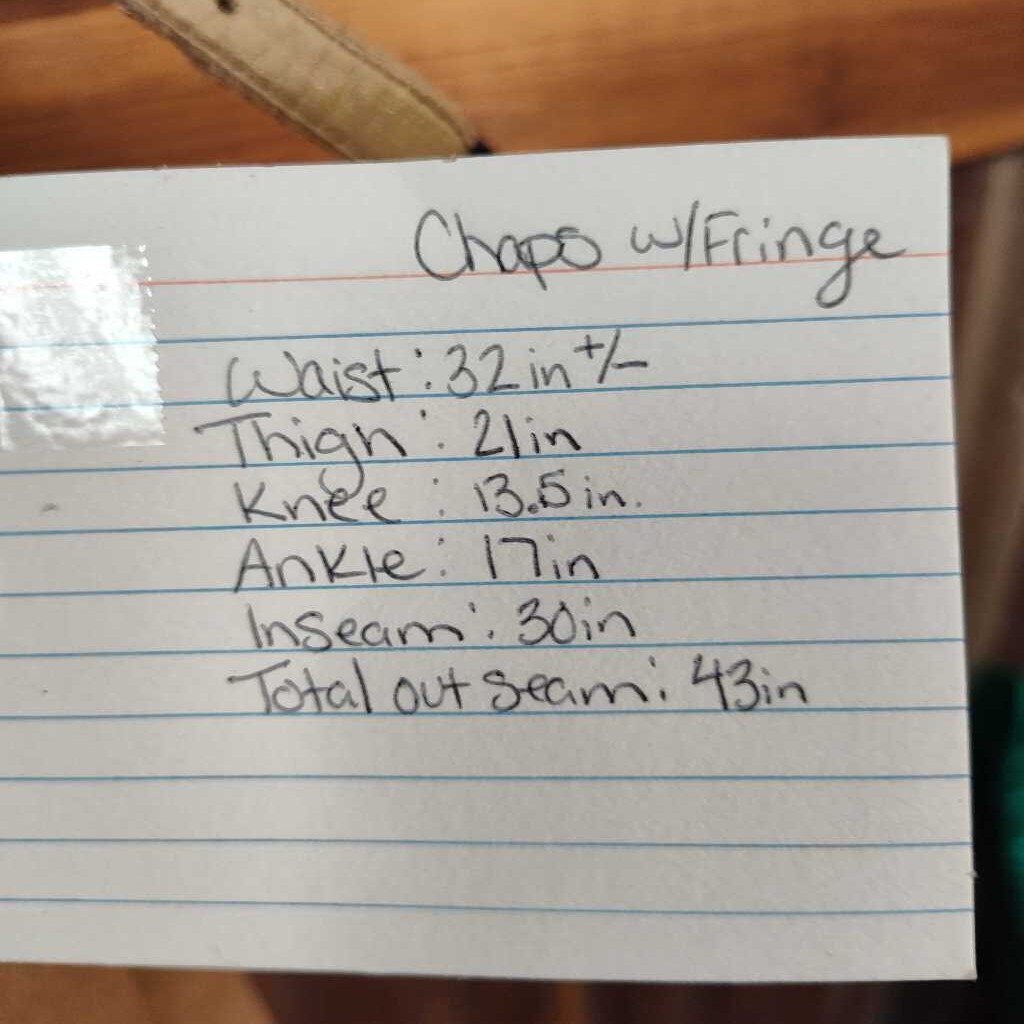 Chaps w/Fringe
Waist: 32 in +/-
Thign: 21in
Knee: 13.5 in.
Ankle: 17in
Inseam: 30in
Total out seam: 43in